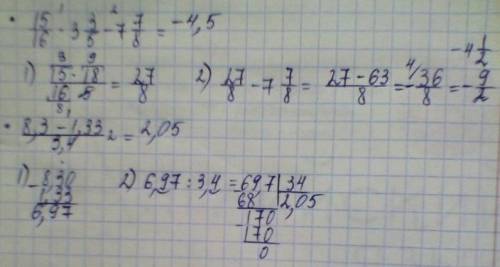 • 15/16 · 3 3/5 - 7 7/8 = -4,5
1) 15·18/16·5 = 27/8 2) 27/8 - 7 7/8 = 27-63/8 = -36/8 = -9/2 = -4 1/2
• 8,3-1,33/3,4 = 2,05
1) 8,30 - 1,33 = 6,97 2) 6,97 : 3,4 = 69,7 | 34
68 2,05
170
170
0